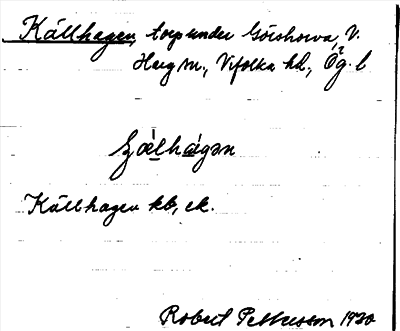 Källhagen, torp under Göishorva, V.
Herg m., Vifolka hd., Ög. l
Källhagen kb, ek.
Robert Pettersson 1920